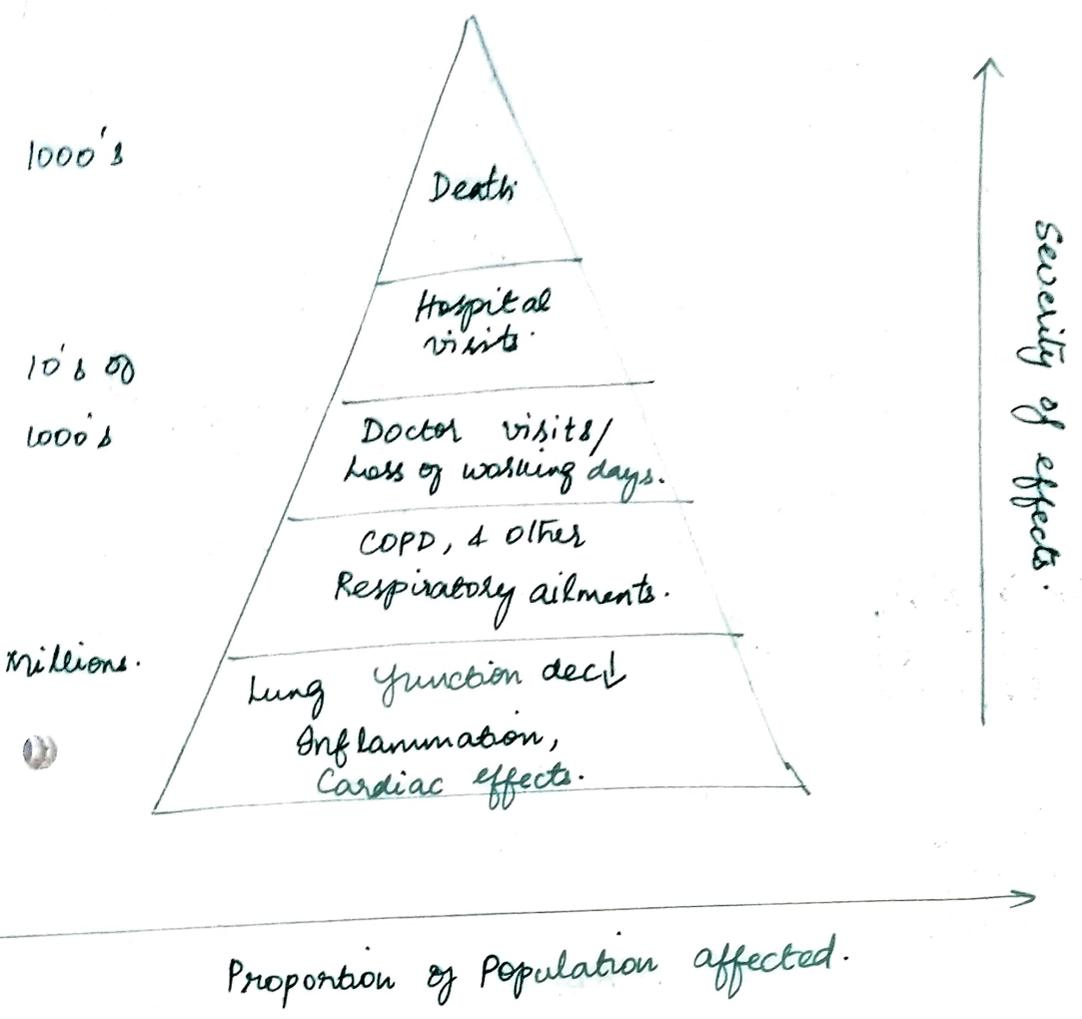 1000's
Death
Hospital
visits.
10's of
1000's
Doctor visits/
Loss of working days.
COPD, & Other
Respiratory ailments.
Millions.
Lung function dec↓
Inflammation,
Cardiac effects.
Severity of effects.
Proportion of Population affected.